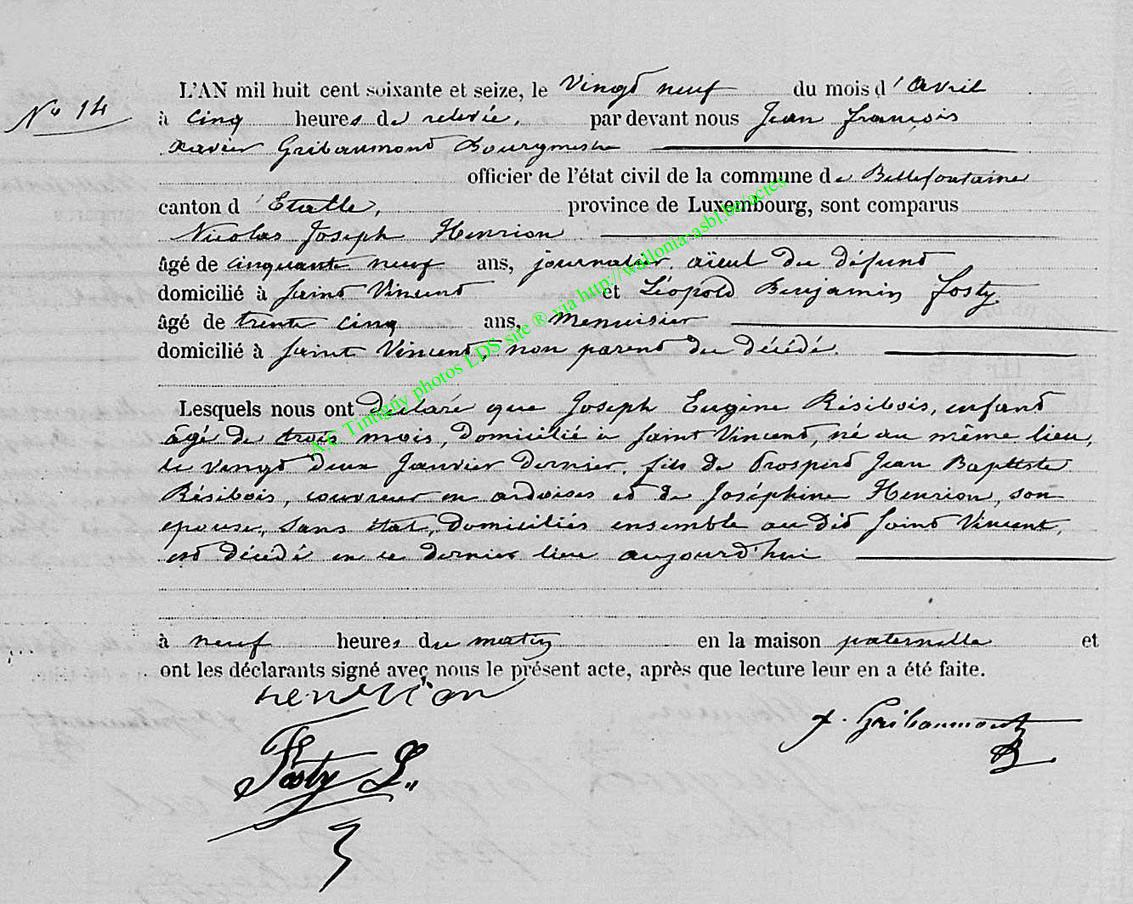 L'AN mil huit cent soixante et seize, le Vingt neuf du mois d'Avril
No 14
à cinq heures de relevée, par devant nous Jean François
Xavier Gribaumont Bourgmestre
officier de l'état civil de la commune de Bellefontaine
canton d'Etalle, province de Luxembourg, sont comparus
Nicolas Joseph Henrion
âgé de cinquante neuf ans, journalier, aïeul du défunt
domicilié à Saint Vincent et Léopold Benjamin Fosty
âgé de trente cinq ans, menuisier
domicilié à Saint Vincent, non parent du décédé.
Lesquels nous ont déclaré que Joseph Eugène Résibois, enfant
âgé de trois mois, domicilié à Saint Vincent, né au même lieu,
le vingt deux Janvier dernier, fils de Prosper Jean Baptiste
Résibois, couvreur en ardoises et de Joséphine Henrion, son
épouse, sans état, domiciliés ensemble au dit Saint Vincent,
est décédé en ce dernier lieu aujourd'hui
à neuf heures du matin en la maison paternelle et
ont les déclarants signé avec nous le présent acte, après que lecture leur en a été faite.
henrion
Fosty L.
x. Gribaumont
B.
Tintigny photos LDS site ® via http://wallonia-asbl.be/actes